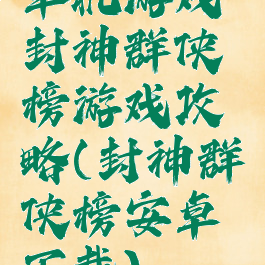 单机游戏
封神群侠
榜游戏攻
略(封神群
侠榜安卓
下载)